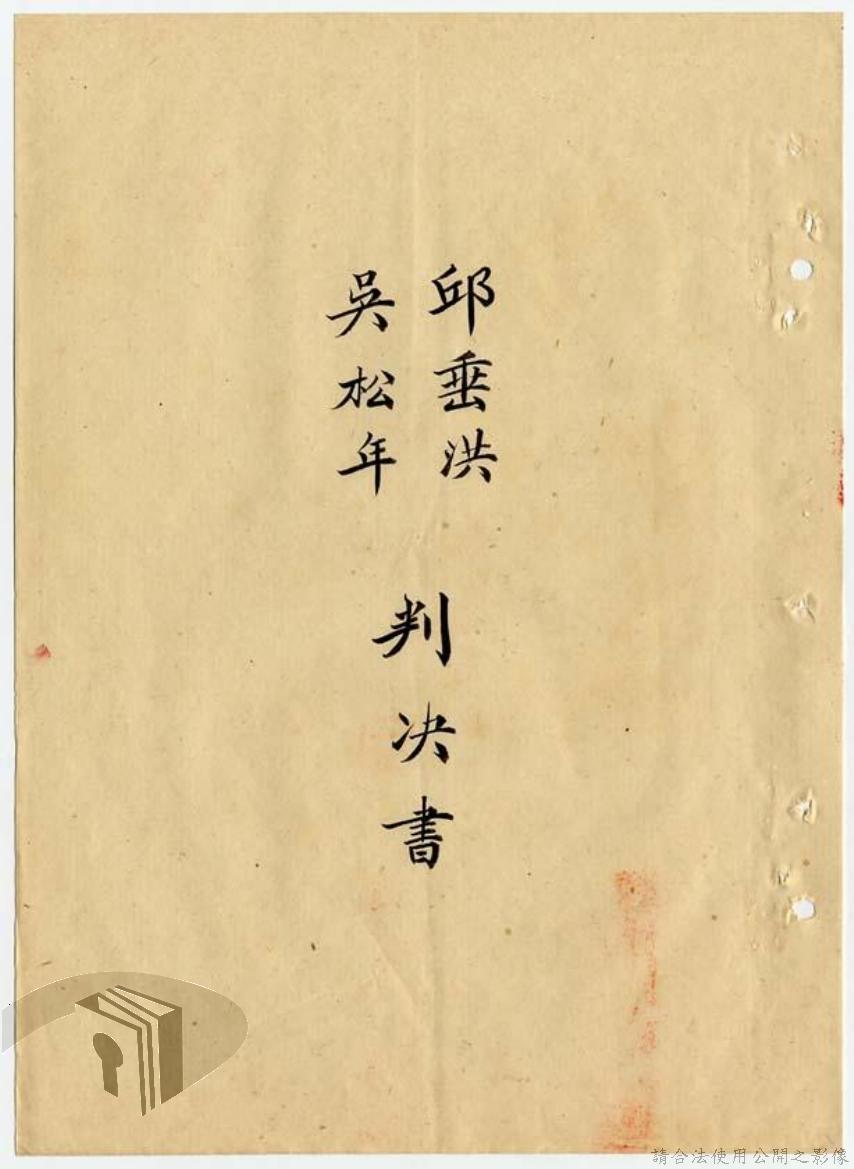 邱垂洪
吳松年
判决書
請合法使用公開之影像